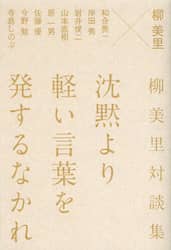 柳美里
和合亮一
岸田秀
岩井俊二
山本直樹
原一男
佐藤優
今野勉
寺島しのぶ
柳美里対談集
沈黙より
軽い言葉を
発するなかれ